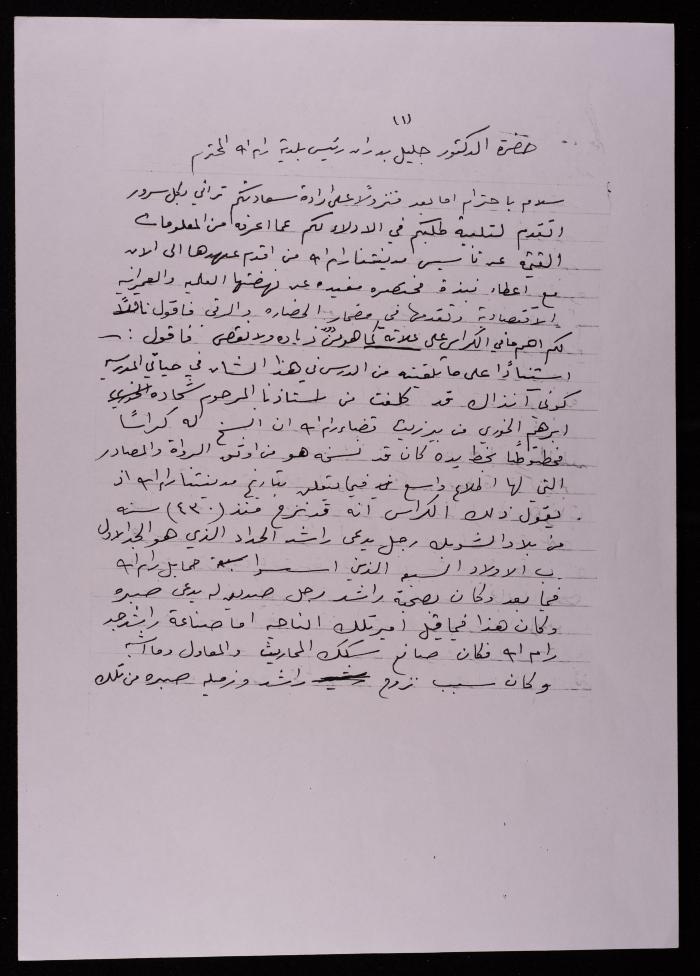 (١)
حضرة الدكتور جليل بدران رئيس بلدية رام الله المحترم
سلام باحترام اما بعد فنزولًا على ارادة سعادتكم تراني بكل سرور
اتقدم لتلبية طلبكم في الادلاء لكم عما اعرفه من المعلومات
القيمة عن تأسيس مدينتنا رام الله من اقدم عهدها الى الان
مع اعطاء نبذة مختصره مفيده عن نهضتها العلميه والعمرانيه
والاقتصادية وتقدمها في مضمار الحضاره والرقي فاقول ناقلًا
لكم اهم ما في الكراس على علاته كما هو دون زياده ولا نقص فاقول :ـ
استنادًا على ما تلقيته من الدرس في هذا الشان في حياتي المدرسيه
كوني آنذاك قد كلفت من استاذنا المرحوم شحاده الخوري
ابرهيم الخوري من بيرزيت قضاء رام الله ان انسخ له كراسًا
مخطوطًا بخط يده كان قد نسخه هو من اوثق الرواة والمصادر
التي لها اطلاع واسع فيما يتعلق بتاريخ مدينتنا رام الله اذ
يقول ذلك الكراس انه قد نزح منذ (٤٣٠) سنه
من بلاد الشوبك رجل يدعى راشد الحداد الذي هو الجد الاول
ب الاولاد السبعه الذين اسسوا سبعة حمايل رام الله
فيما بعد وكان بصحبة راشد رجل صديق له يدعى صبره
وكان هذا فيما قيل امير تلك الناحيه اما صناعة راشد جد
رام الله فكان صانع سكك المحاريث والمعاول وما اشبه
وكان سبب نزوح راشد وزميله صبره من تلك